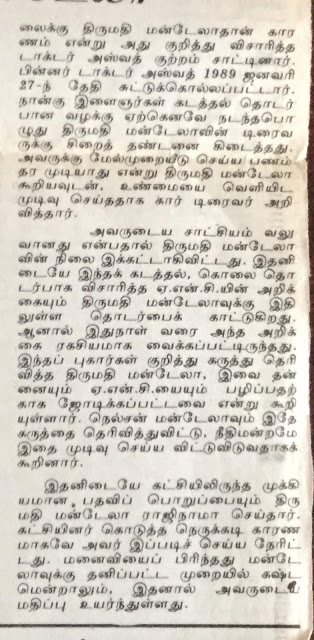 லைக்கு திருமதி மன்டேலாதான் கார
ணம் என்று அது குறித்து விசாரித்த
டாக்டர் அஸ்வத் குற்றம் சாட்டினார்.
பின்னர் டாக்டர் அஸ்வத் 1989 ஜனவரி
27-ந் தேதி சுட்டுக்கொல்லப்பட்டார்.
நான்கு இளைஞர்கள் கடத்தல் தொடர்
பான வழக்கு ஏற்கெனவே நடந்தபொ
ழுது திருமதி மன்டேலாவின் டிரைவ
ருக்கு சிறைத் தண்டனை கிடைத்தது.
அவருக்கு மேல்முறையீடு செய்ய பணம்
தர முடியாது என்று திருமதி மன்டேலா
கூறியவுடன், உண்மையை வெளியிட
முடிவு செய்ததாக கார் டிரைவர் அறி
வித்தார்.
அவருடைய சாட்சியம் வலு
வானது என்பதால் திருமதி மன்டேலா
வின் நிலை இக்கட்டாகிவிட்டது. இதனி
டையே இந்தக் கடத்தல், கொலை தொ
டர்பாக விசாரித்த ஏ.என்.சி.யின் அறிக்
கையும் திருமதி மன்டேலாவுக்கு இதி
லுள்ள தொடர்பைக் காட்டுகிறது.
ஆனால் இதுநாள் வரை அந்த அறிக்
கை ரகசியமாக வைக்கப்பட்டிருந்தது.
இந்தப் புகார்கள் குறித்து கருத்து தெரி
வித்த திருமதி மன்டேலா, இவை தன்
னையும் ஏ.என்.சி.யையும் பழிப்பதற்
காக ஜோடிக்கப்பட்டவை என்று கூறி
யுள்ளார். நெல்சன் மன்டேலாவும் இதே
கருத்தை தெரிவித்துவிட்டு, நீதிமன்றமே
இதை முடிவு செய்ய விட்டுவிடுவதாகக்
கூறினார்.
இதனிடையே கட்சியிலிருந்த முக்கி
யமான பதவிப் பொறுப்பையும் திரு
மதி மன்டேலா ராஜினாமா செய்தார்.
கட்சியினர் கொடுத்த நெருக்கடி காரண
மாகவே அவர் இப்படிச் செய்ய நேரிட்
டது. மனைவியைப் பிரிந்தது மன்டே
லாவுக்கு தனிப்பட்ட முறையில் கஷ்ட
மென்றாலும், இதனால் அவருடைய
மதிப்பு உயர்ந்துள்ளது.